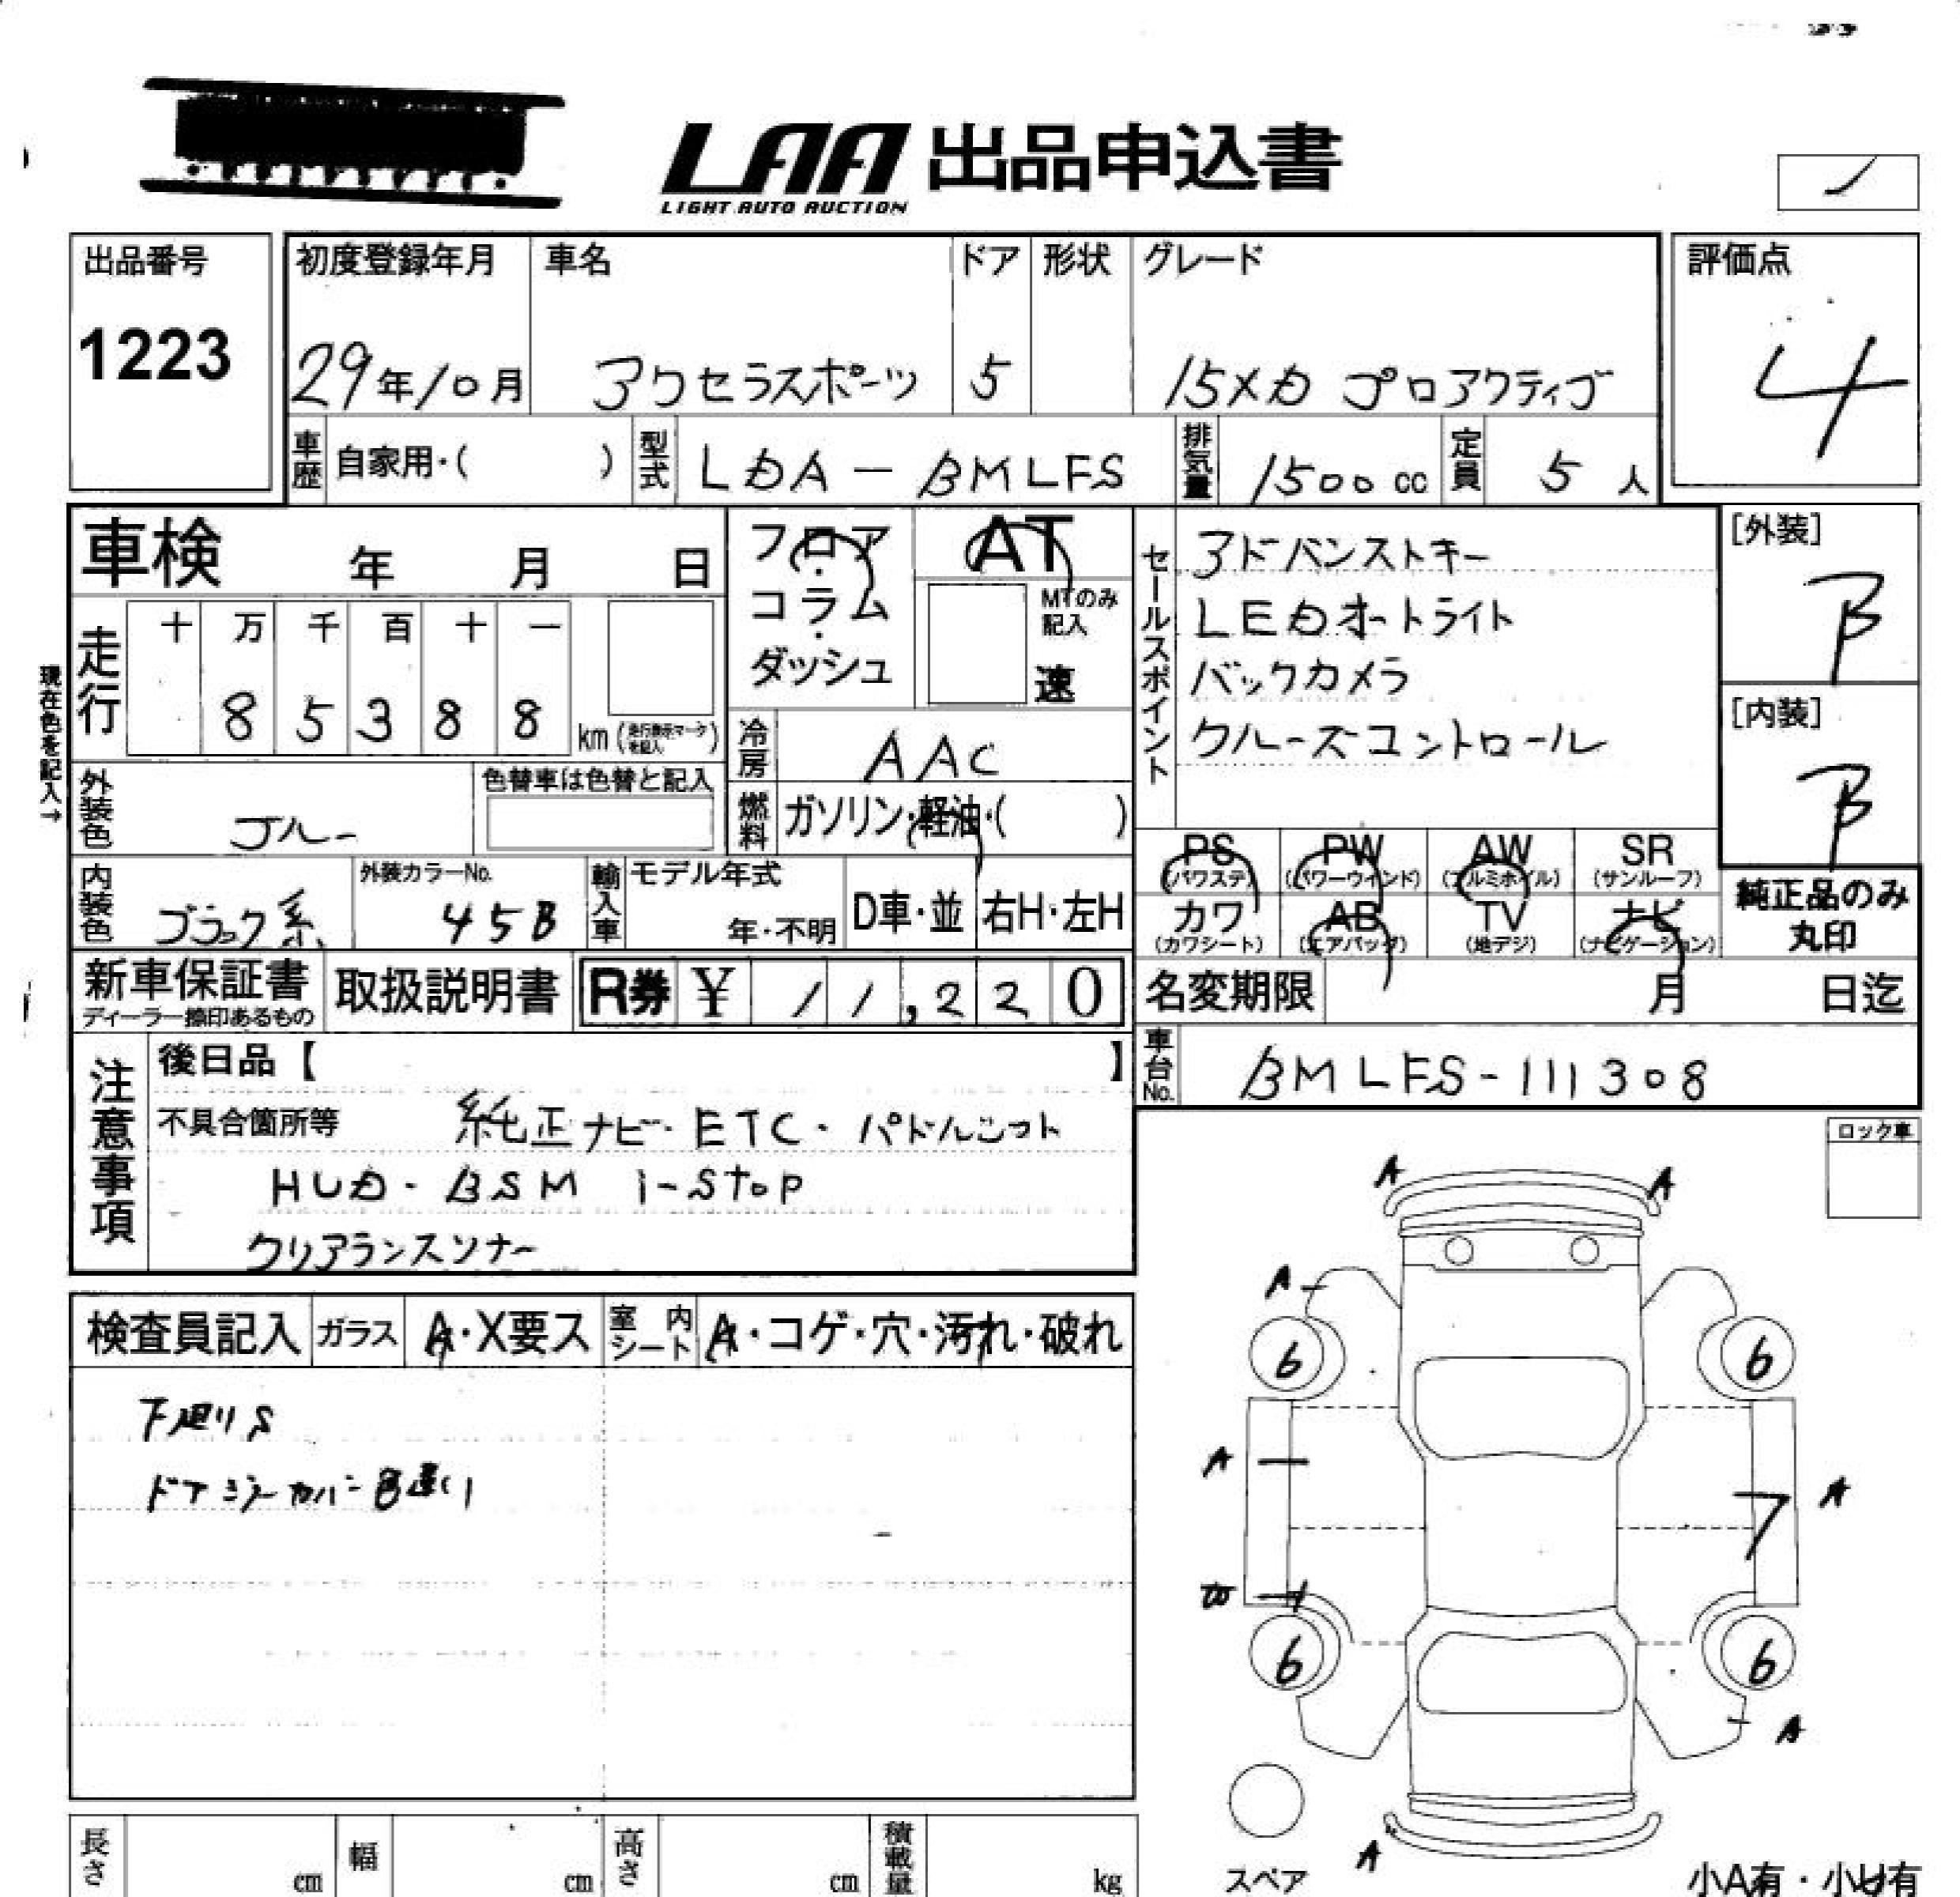 LAA 出品申込書
LIGHT AUTO AUCTION
出品番号
1223
初度登録年月 車名 ドア 形状 グレード
29年10月 アクセラスポーツ 5 15XD プロアクティブ
評価点
4
車歴 自家用・( ) 型式 LDA-BMLFS 排気量 1500cc 定員 5人
車検 年 月 日
フロア・コラム・ダッシュ
AT
MTのみ記入
速
走行 十 万 千 百 十 一
8 5 3 8 8 km (走行表示マークを記入)
現在色を記入→
冷房 AAC
燃料 ガソリン・軽油・( )
外装色 ブルー 色替車は色替と記入
内装色 ブラック系 外装カラーNo. 45B
輸入車 モデル年式 年・不明 D車・並 右H・左H
セールスポイント
アドバンストキー
LEDオートライト
バックカメラ
クルーズコントロール
[外装]
B
[内装]
B
PS (パワステ) PW (パワーウインド) AW (アルミホイル) SR (サンルーフ)
カワ (カワシート) AB (エアバッグ) TV (地デジ) ナビ (ナビゲーション)
純正品のみ
丸印
新車保証書 取扱説明書 R券 ¥ 11,220
ディーラー捺印あるもの
名変期限 月 日迄
車台No. BMLFS-111308
注意事項
後日品【 】
不具合箇所等 純正ナビ・ETC・パドルシフト
HUD・BSM i-stop
クリアランスソナー
ロック車
検査員記入 ガラス A・X要ス 室内シート A・コゲ・穴・汚れ・破れ
下廻りS
A A
A
6 6
A A
W
6 6
A
A
スペア
小A有・小U有
長さ cm 幅 cm 高さ cm 積載量 kg